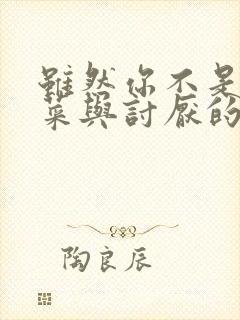 雖然你不是
菜與討厭的
陶良辰